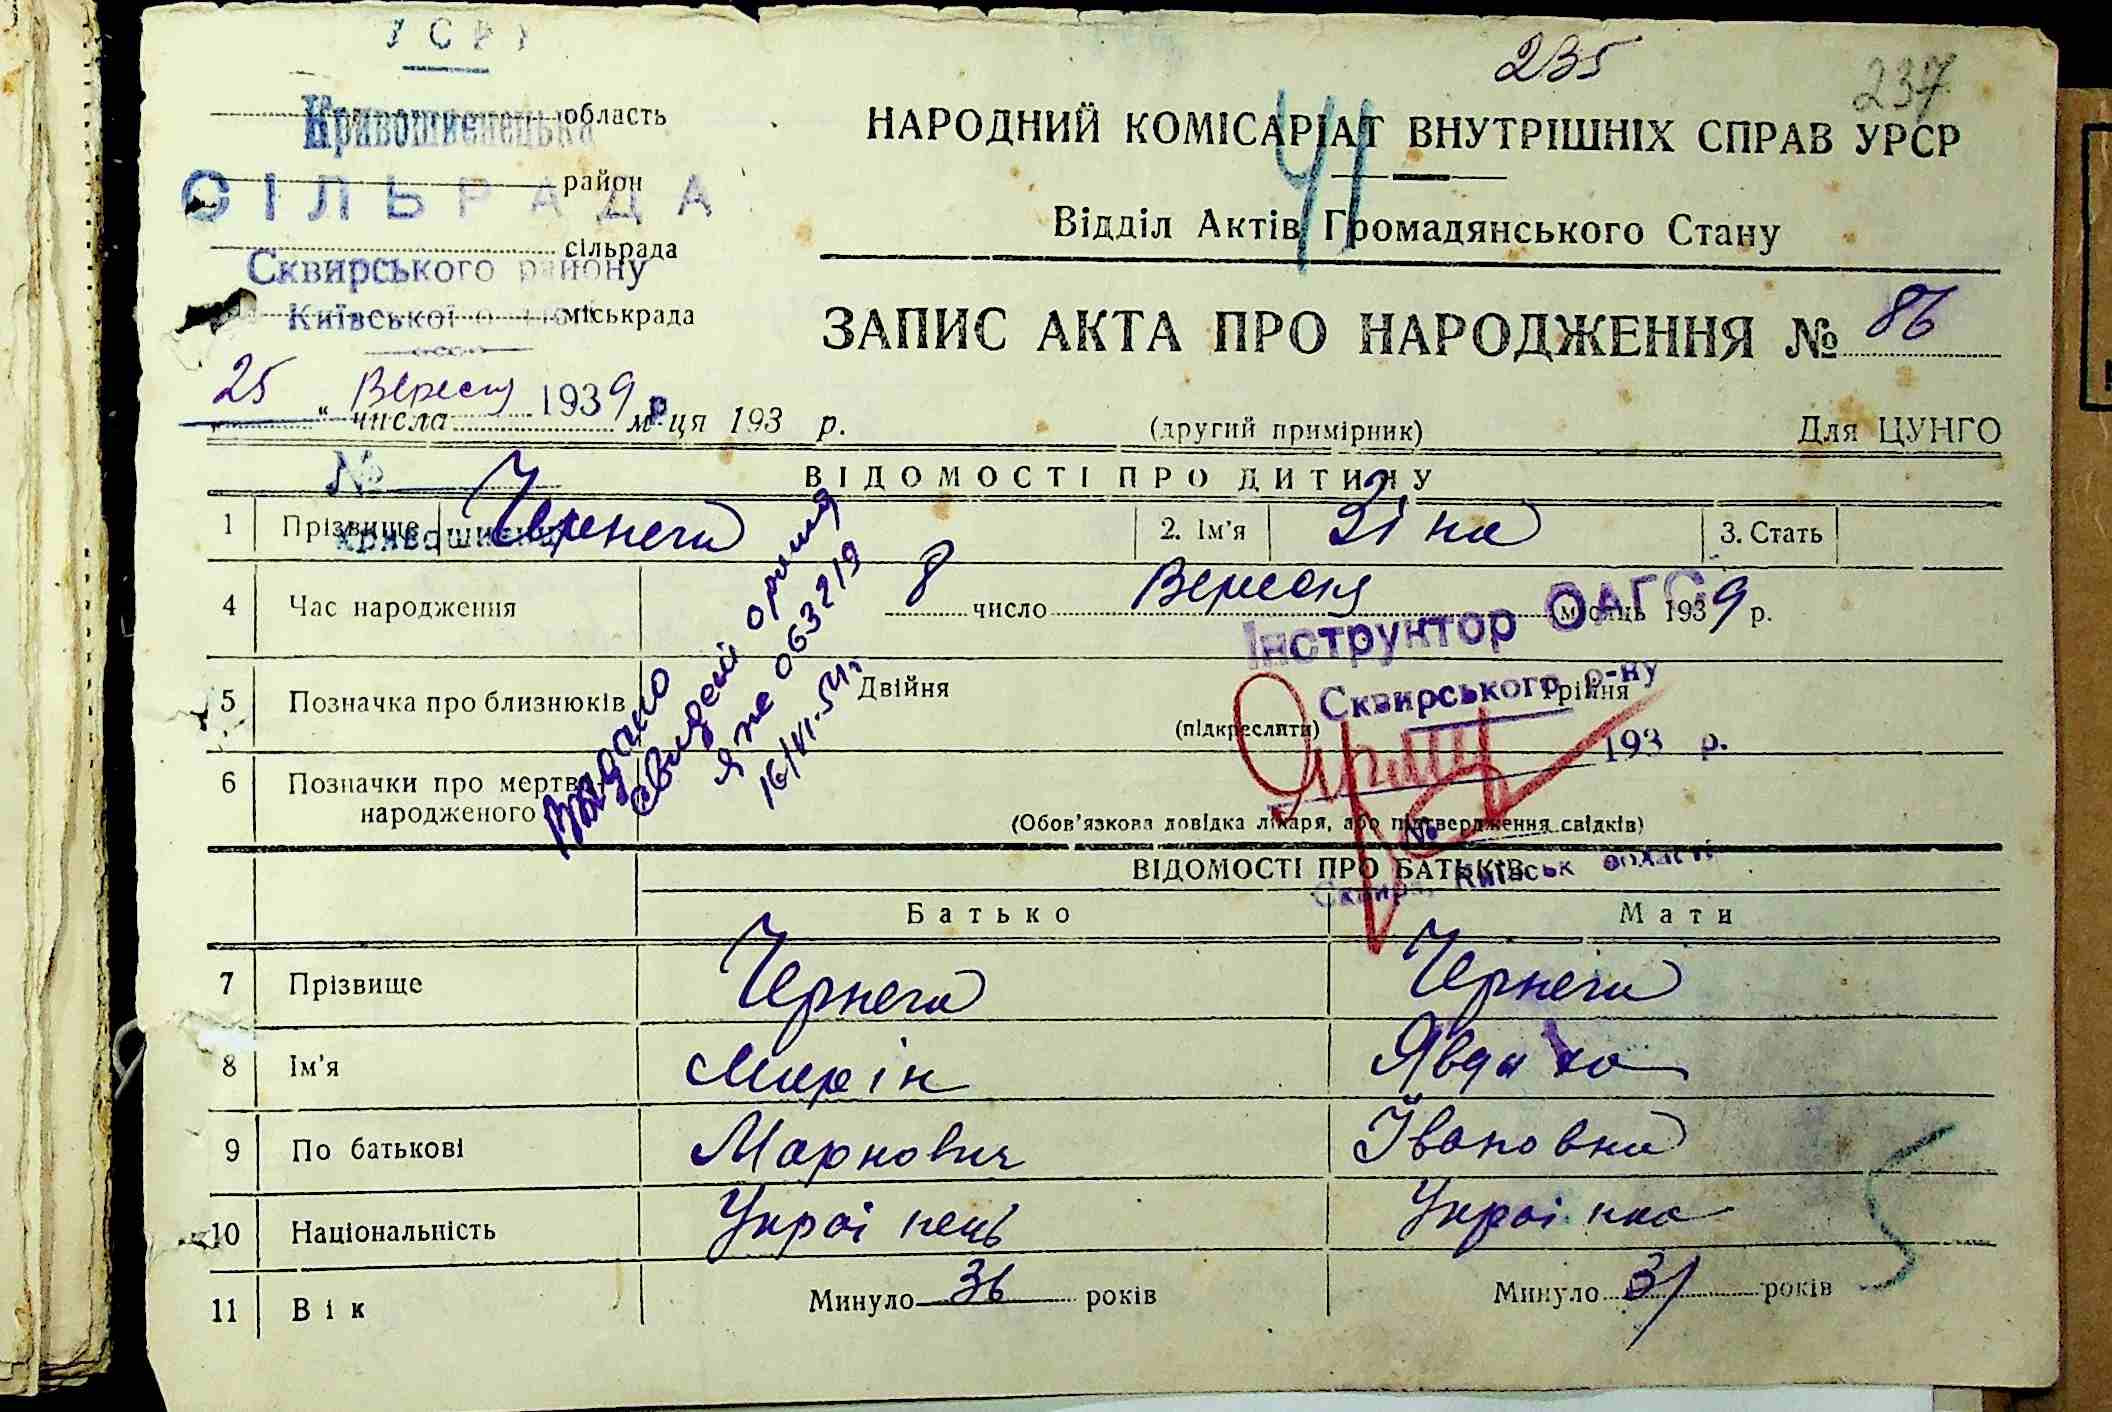 УСРР
235
237
Кривошиєнецька область
НАРОДНИЙ КОМІСАРІАТ ВНУТРІШНІХ СПРАВ УРСР
СІЛЬРАДА район
41
Відділ Актів Громадянського Стану
сільрада
Сквирського району
Київської міськрада
ЗАПИС АКТА ПРО НАРОДЖЕННЯ № 86
25 Вересня 1939 р.
" числа м-ця 193 р.
(другий примірник)
Для ЦУНГО
№
ВІДОМОСТІ ПРО ДИТИНУ
1 Прізвище Чернега 2. Ім'я Зіна 3. Стать
4 Час народження 8 число Вересня місяць 1939 р.
Інструктор ОАГС
Сквирського р-ну
193 р.
№
Сквира, Київськ області
5 Позначка про близнюків Двійня (підкреслити) Трійня
6 Позначки про мертво-
народженого
(Обов'язкова довідка лікаря, або підтвердження свідків)
Видано
063219
16/VI-54 г
ВІДОМОСТІ ПРО БАТЬКІВ
Батько Мати
7 Прізвище Чернега Чернега
8 Ім'я Явдоха
9 По батькові Маркович Івановна
10 Національність Українець Українка
11 Вік Минуло 36 років Минуло 31 років